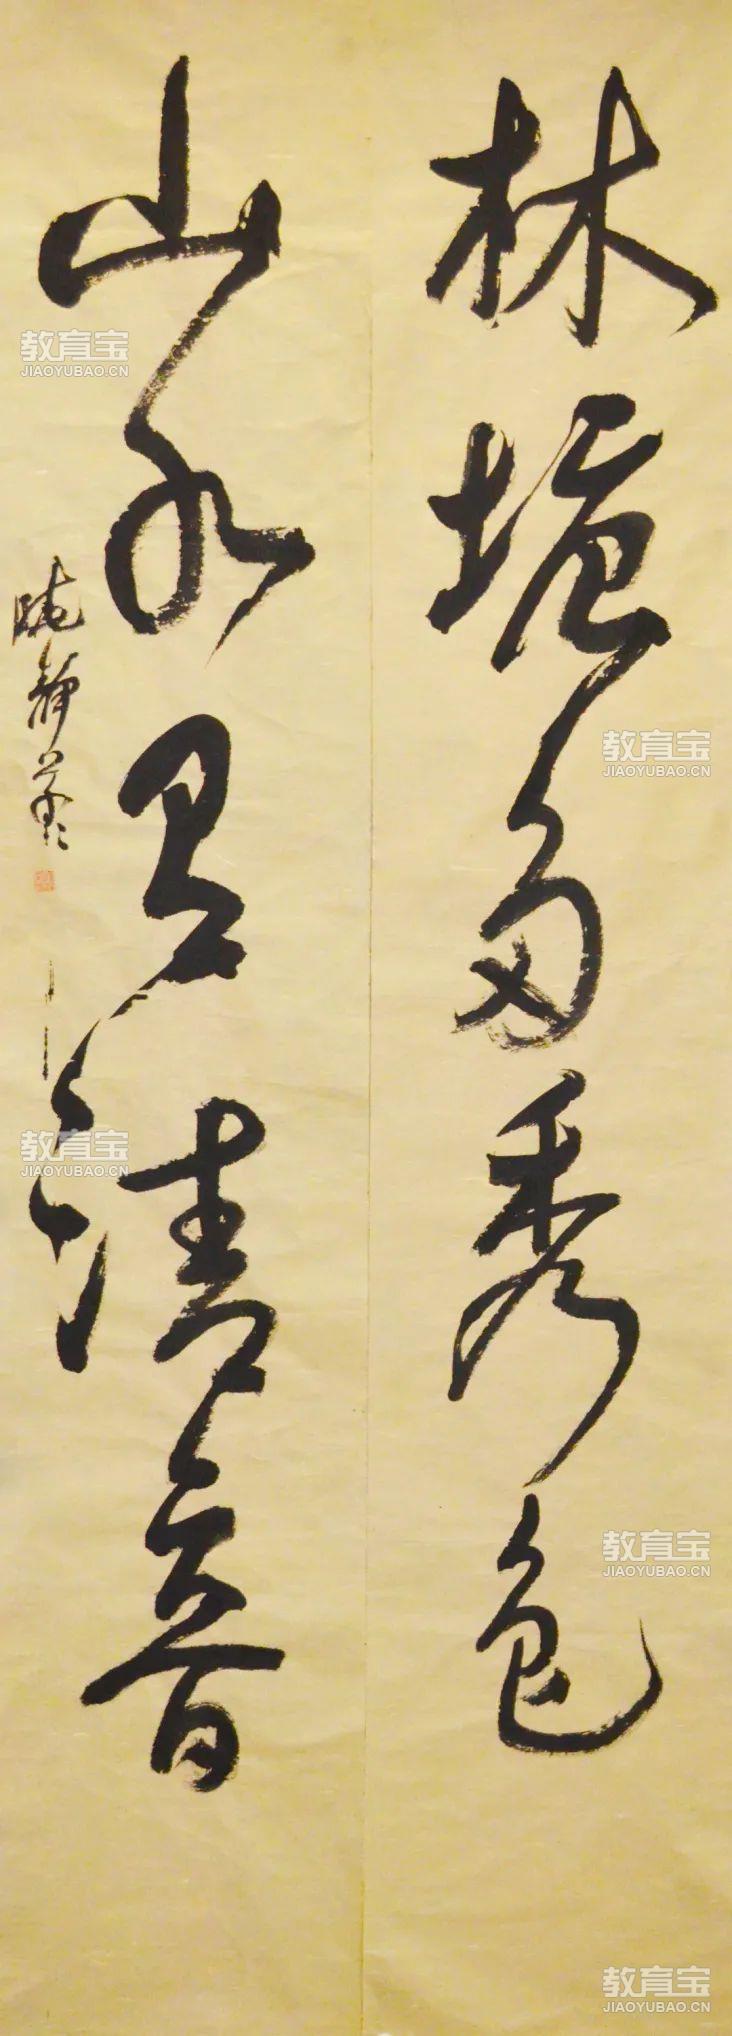 林塘多秀色
山水有清音
晓静书
教育宝
JIAOYUBAO.CN
教育宝
JIAOYUBAO.CN
教育宝
JIAOYUBAO.CN
教育宝
JIAOYUBAO.CN
教育宝
JIAOYUBAO.CN